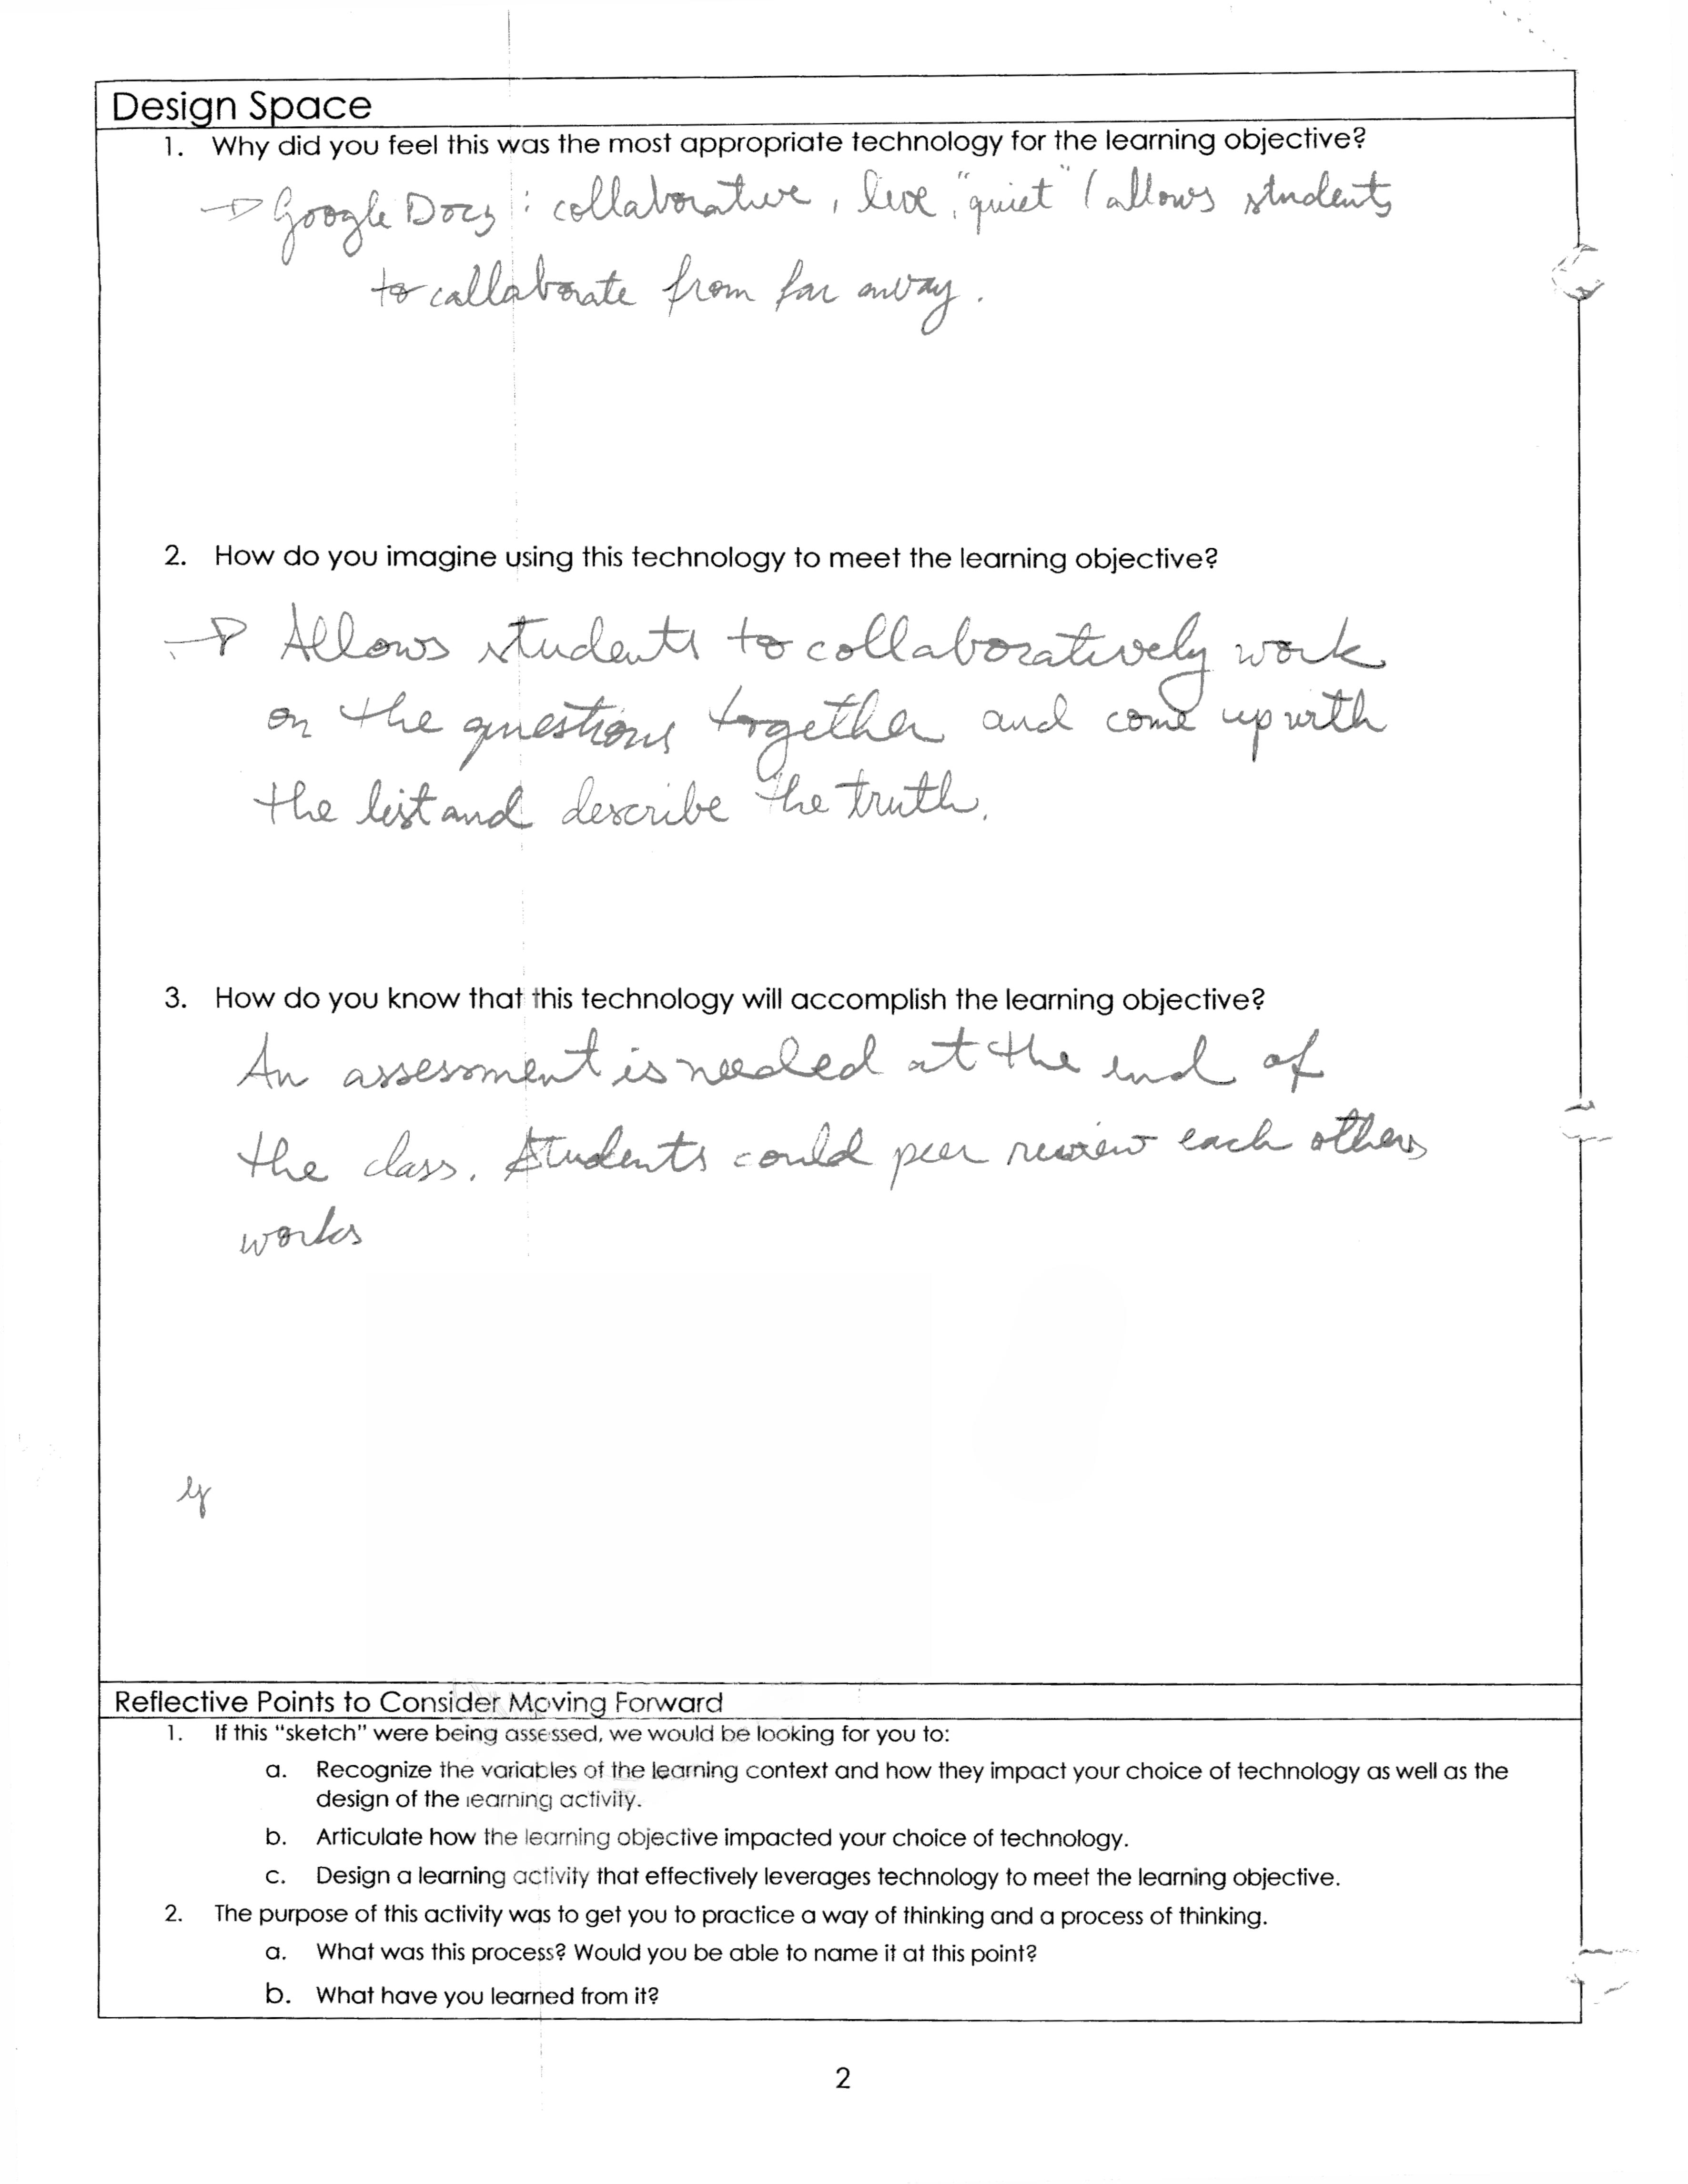 Design Space
1. Why did you feel this was the most appropriate technology for the learning objective?
→ Google Docs : collaborative, live, "quiet" (allows students
to collaborate from far away.
2. How do you imagine using this technology to meet the learning objective?
→ Allows students to collaboratively work
on the questions together and come up with
the list and describe the truth.
3. How do you know that this technology will accomplish the learning objective?
An assessment is needed at the end of
the class. Students could peer review each others
works
Reflective Points to Consider Moving Forward
1. If this "sketch" were being assessed, we would be looking for you to:
a. Recognize the variables of the learning context and how they impact your choice of technology as well as the
design of the learning activity.
b. Articulate how the learning objective impacted your choice of technology.
c. Design a learning activity that effectively leverages technology to meet the learning objective.
2. The purpose of this activity was to get you to practice a way of thinking and a process of thinking.
a. What was this process? Would you be able to name it at this point?
b. What have you learned from it?
2